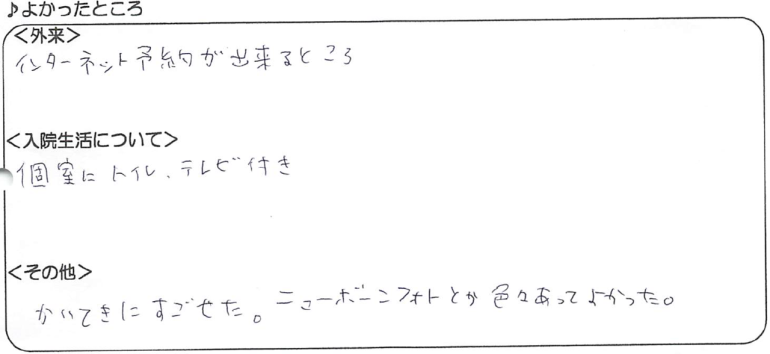 ♪よかったところ
＜外来＞
インターネット予約が出来るところ
＜入院生活について＞
個室にトイレ、テレビ付き
＜その他＞
かいてきにすごせた。ニューボーンフォトとか色々あってよかった。